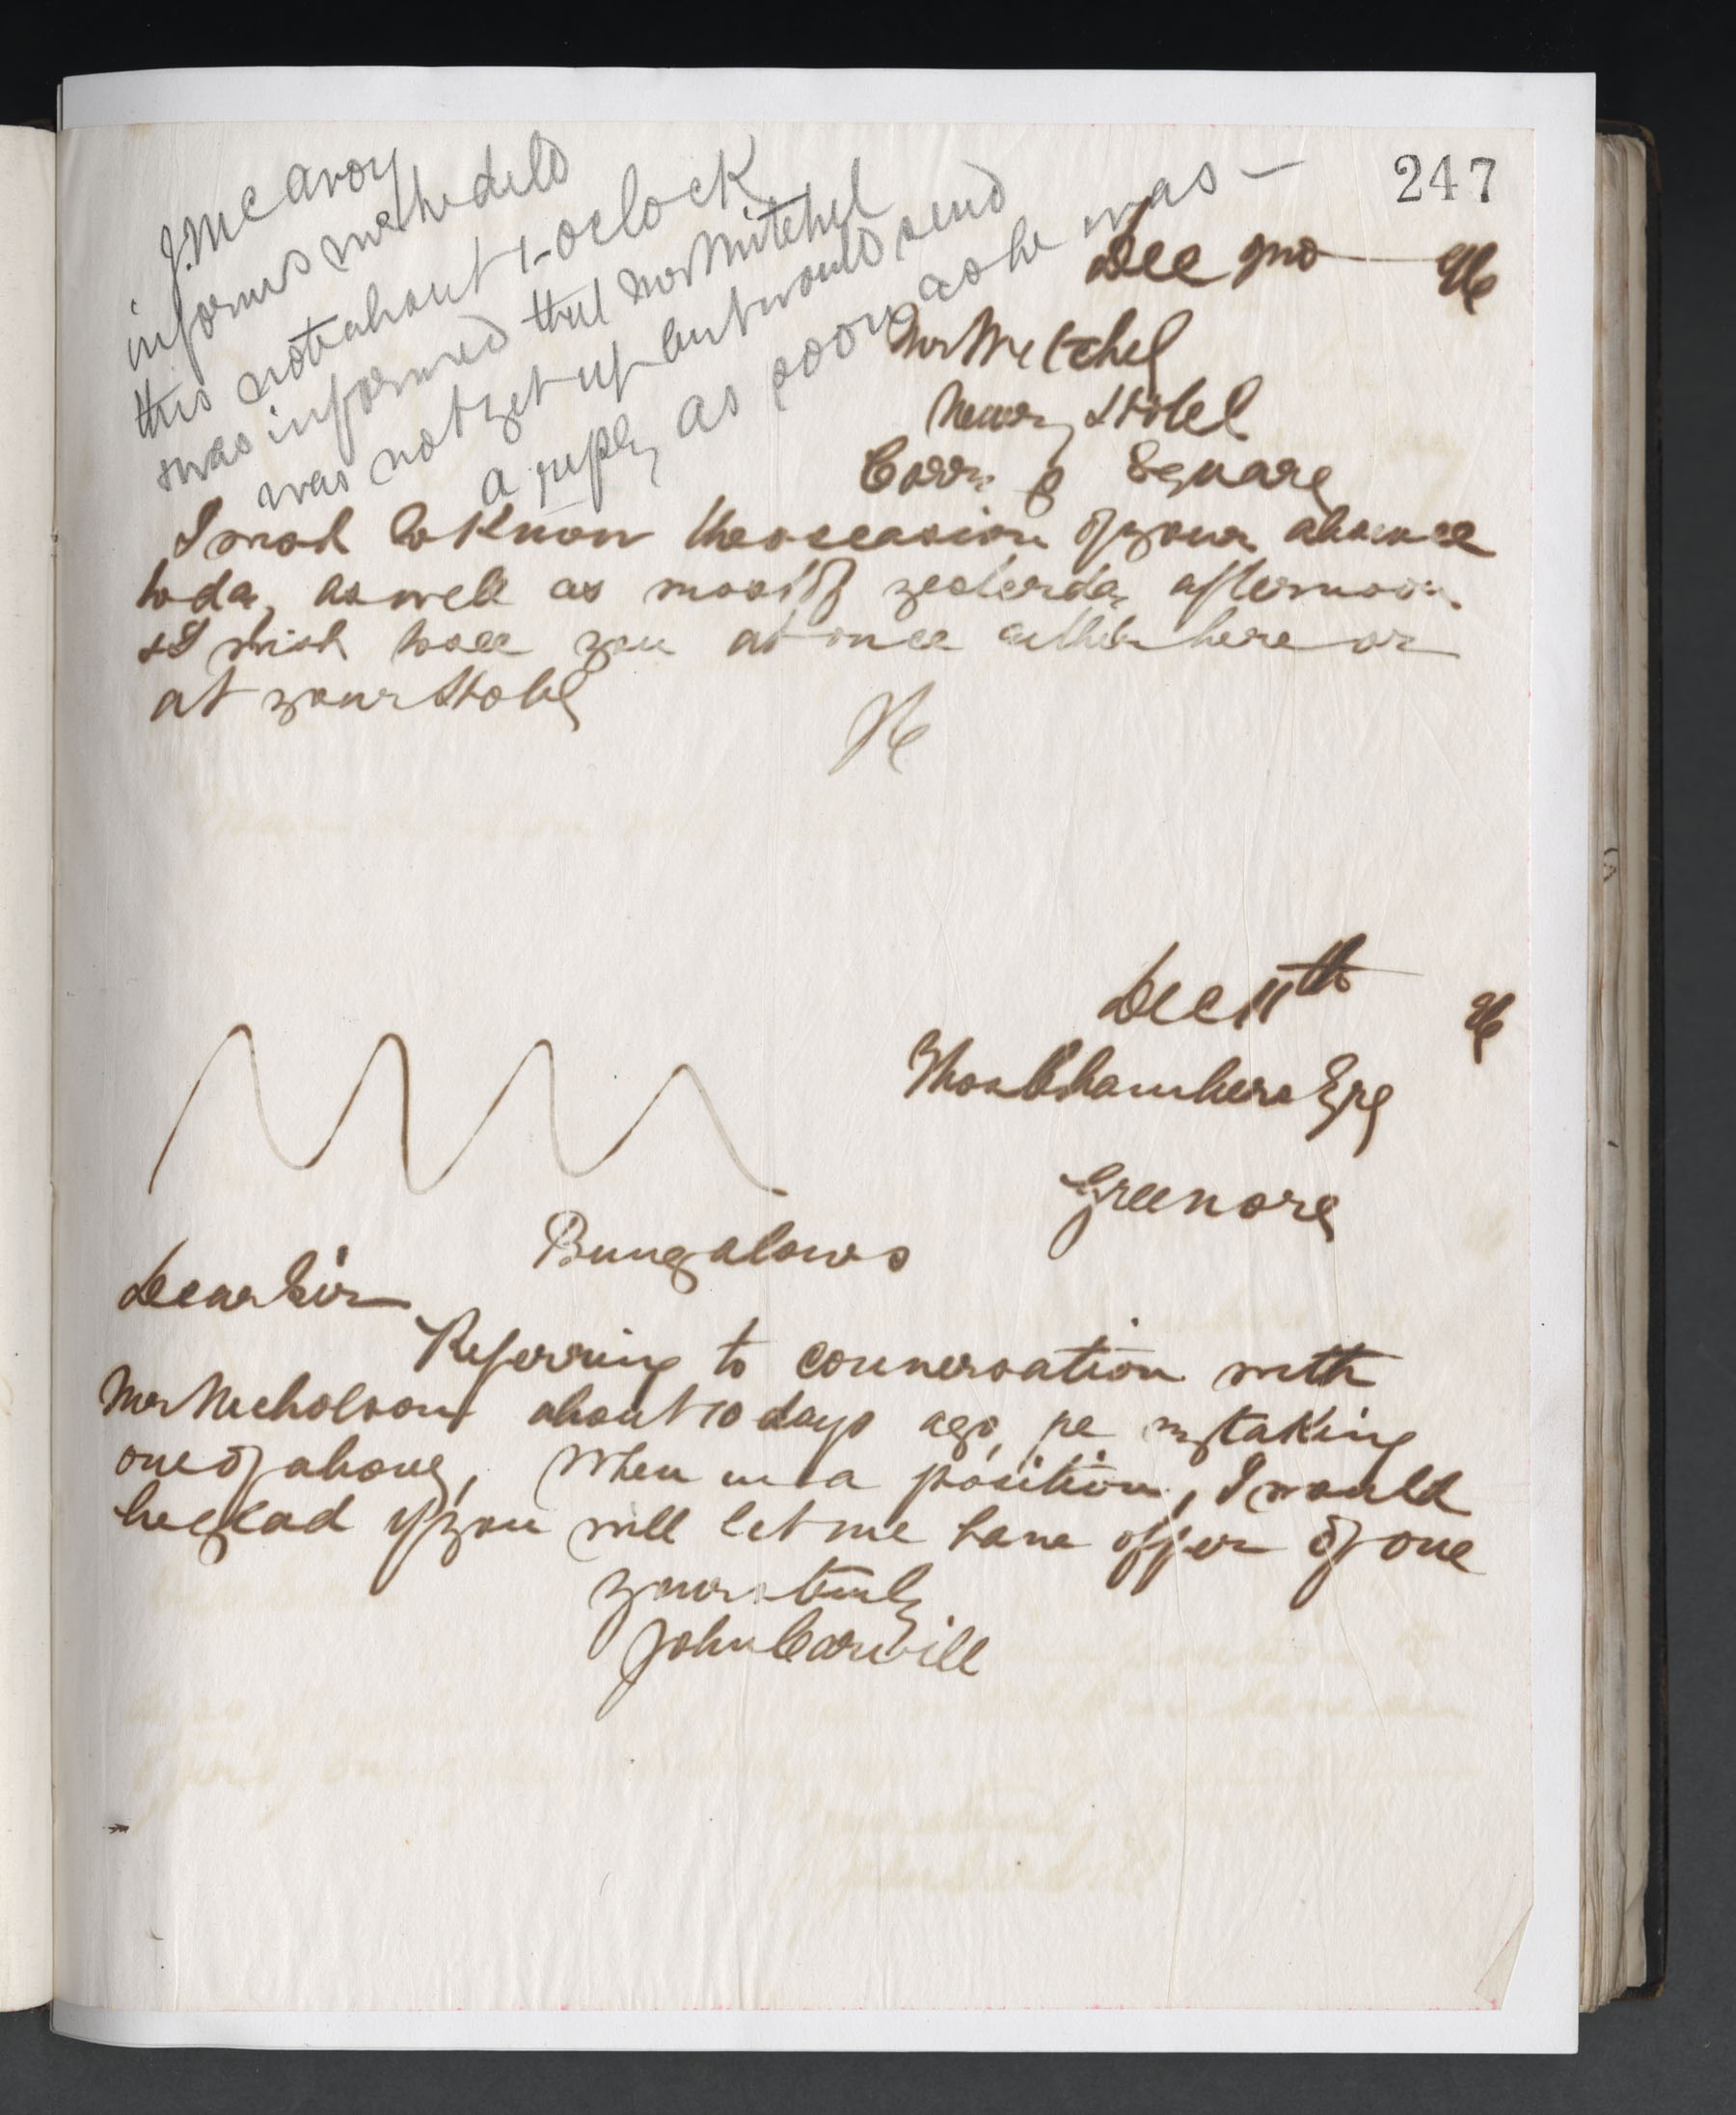 247
J. McAvoy
informs me he deld
this note about 1-oclock
was informed that Mr Mitchel
was not yet up but would send
a reply as soon as he was —
Dec 2nd — 96
Mr Mitchel
Newry Hotel
Corry Square
I wish to know the occasion of your absence
today, as well as most of yesterday afternoon.
& I wish to see you at once either here or
at your Hotel
Dec 11th 96
Thos Chambers Esq
Greenore
Bungalows
Dear Sir
Referring to conversation with
Mr Nicholson about 10 days ago, re my taking
one of above, when in a position, I would
be glad if you will let me have offer of one
yours truly
John Carvill